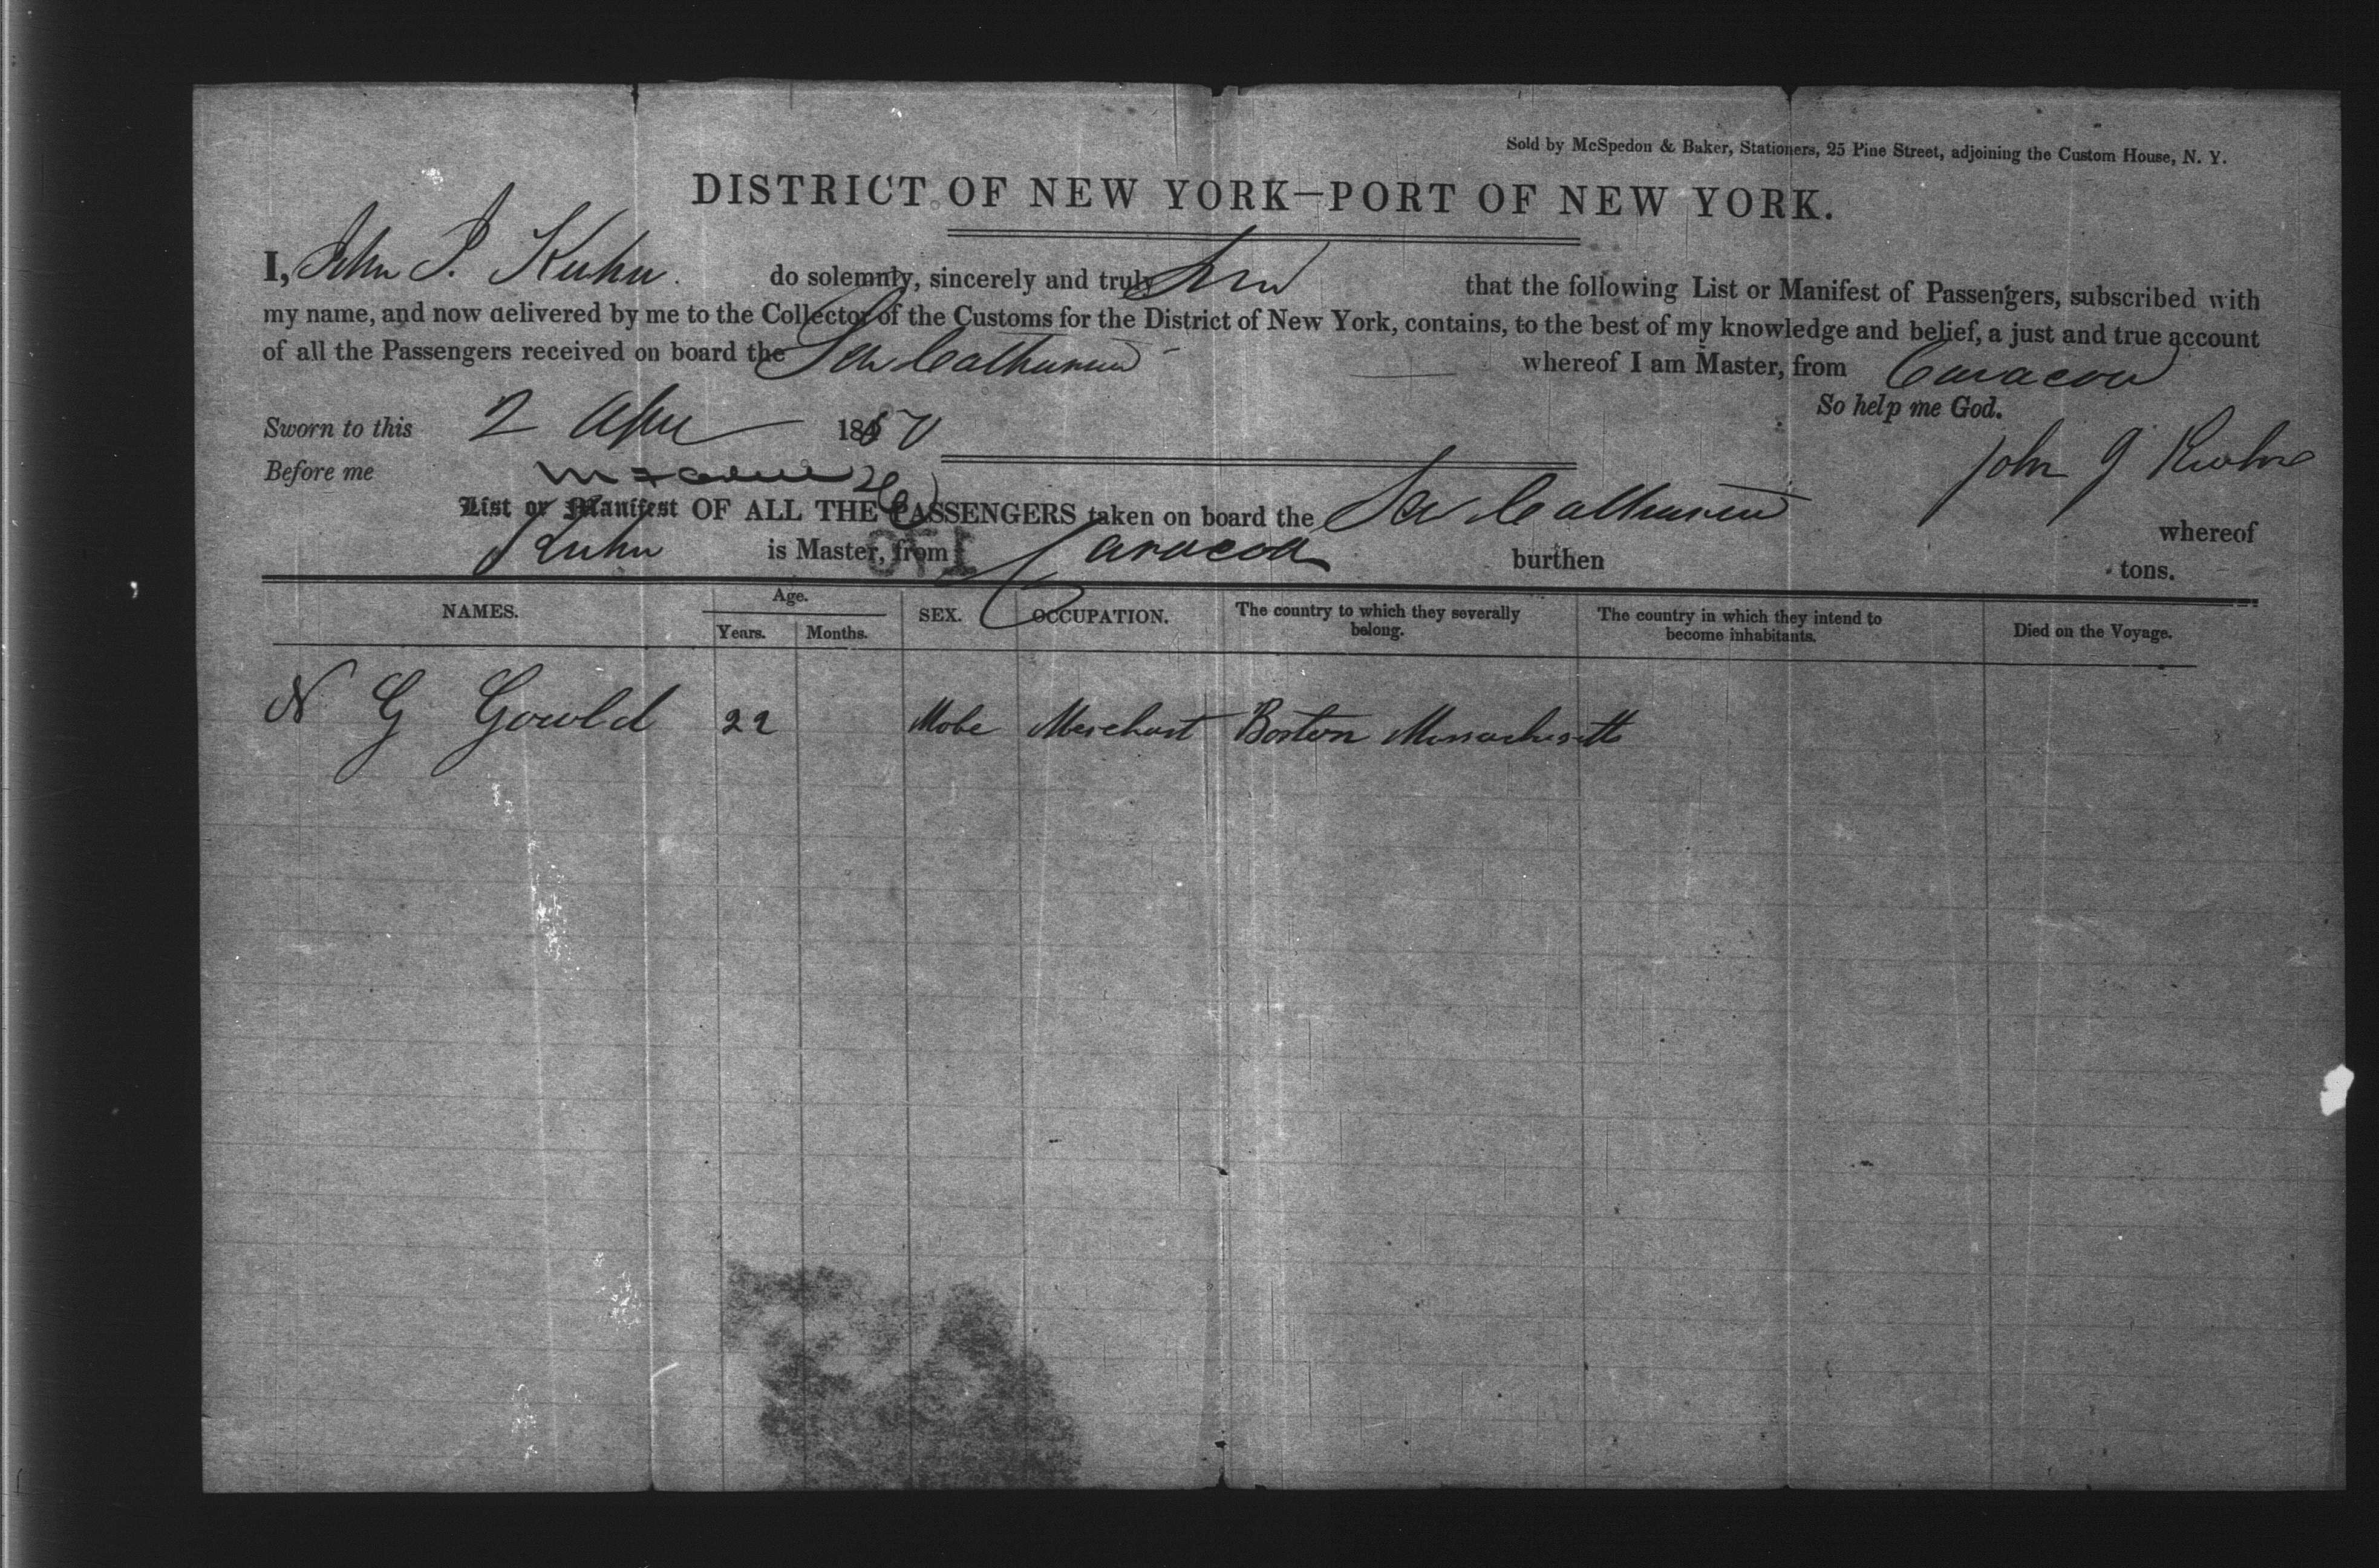 Sold by McSpedon & Baker, Stationers, 25 Pine Street, adjoining the Custom House, N. Y.
DISTRICT OF NEW YORK—PORT OF NEW YORK.
I, John J. Kuhn. do solemnly, sincerely and truly that the following List or Manifest of Passengers, subscribed with
my name, and now delivered by me to the Collector of the Customs for the District of New York, contains, to the best of my knowledge and belief, a just and true account
of all the Passengers received on board the whereof I am Master, from Curacoa
So help me God.
Sworn to this 2 Apr 1850
Before me John J Kuhn
List or Manifest OF ALL THE PASSENGERS taken on board the whereof
Kuhn is Master, from Curacoa burthen tons.
NAMES. Age. Years. Months. SEX. OCCUPATION. The country to which they severally belong. The country in which they intend to become inhabitants. Died on the Voyage.
N G Gould 22 Merchant Boston Massachusetts